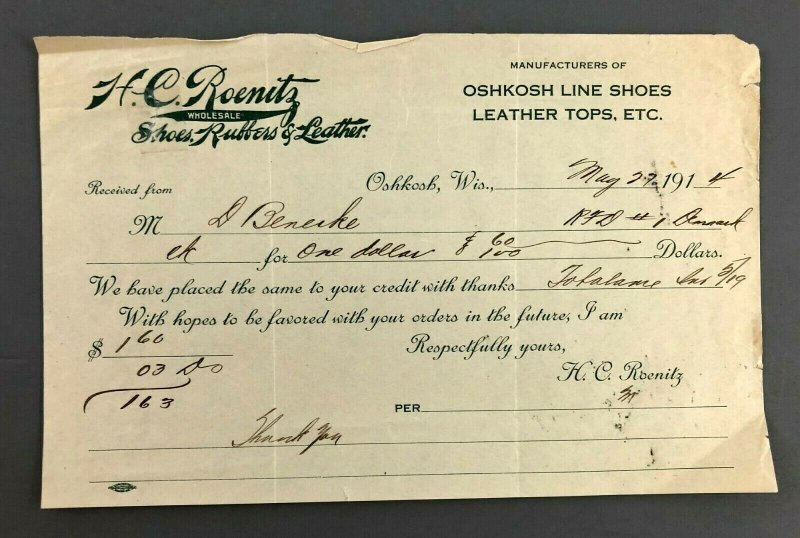 H. C. Roenitz
WHOLESALE
Shoes, Rubbers & Leather.
MANUFACTURERS OF
OSHKOSH LINE SHOES
LEATHER TOPS, ETC.
Received from
Oshkosh, Wis., May 27 1914
M D Beneske RFD # 1 Denmark
ck for One dollar & 60/100 Dollars.
We have placed the same to your credit with thanks 5/19
With hopes to be favored with your orders in the future, I am
$ 1 60 Respectfully yours,
03 H. C. Roenitz
1 63 PER
Thank you